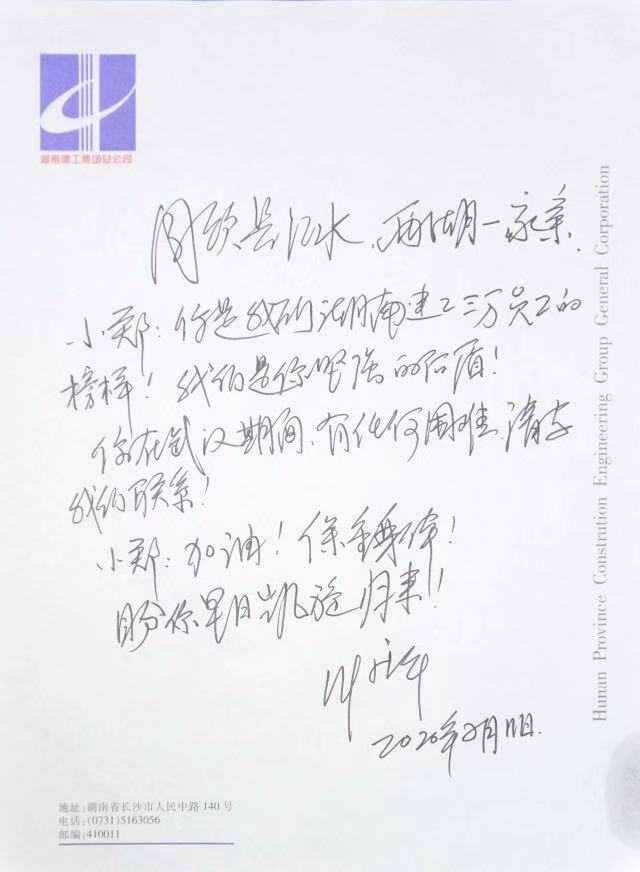 湖南建工集团总公司
同饮长江水、两湖一家亲.
小郑: 你是我们湖南建工三万员工的
榜样! 我们是你坚强的后盾!
你在武汉期间、有任何困难、请与
我们联系!
小郑: 加油! 保重身体!
盼你早日凯旋归来!
叶
2020年2月11日.
Hunan Province Constrution Engineering Group General Corporation
地址:湖南省长沙市人民中路 140 号
电话:(0731)5163056
邮编:410011